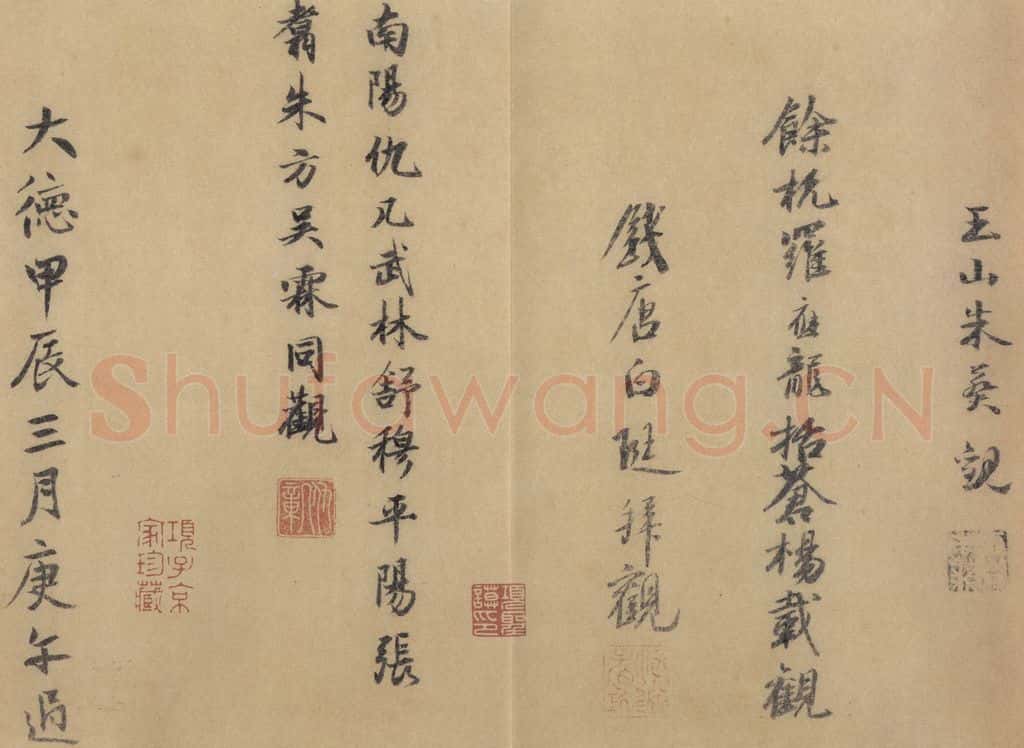 玉山朱英觀
餘杭羅應龍括蒼楊載觀
錢唐白珽拜觀
項聖謨印
南陽仇几武林舒穆平陽張
翥朱方吳霖同觀
項子京家珍藏
大德甲辰三月庚午過
Shufawang.CN